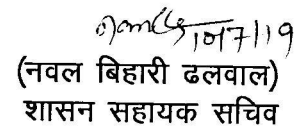 10/7/19
(नवल बिहारी ढलवाल)
शासन सहायक सचिव